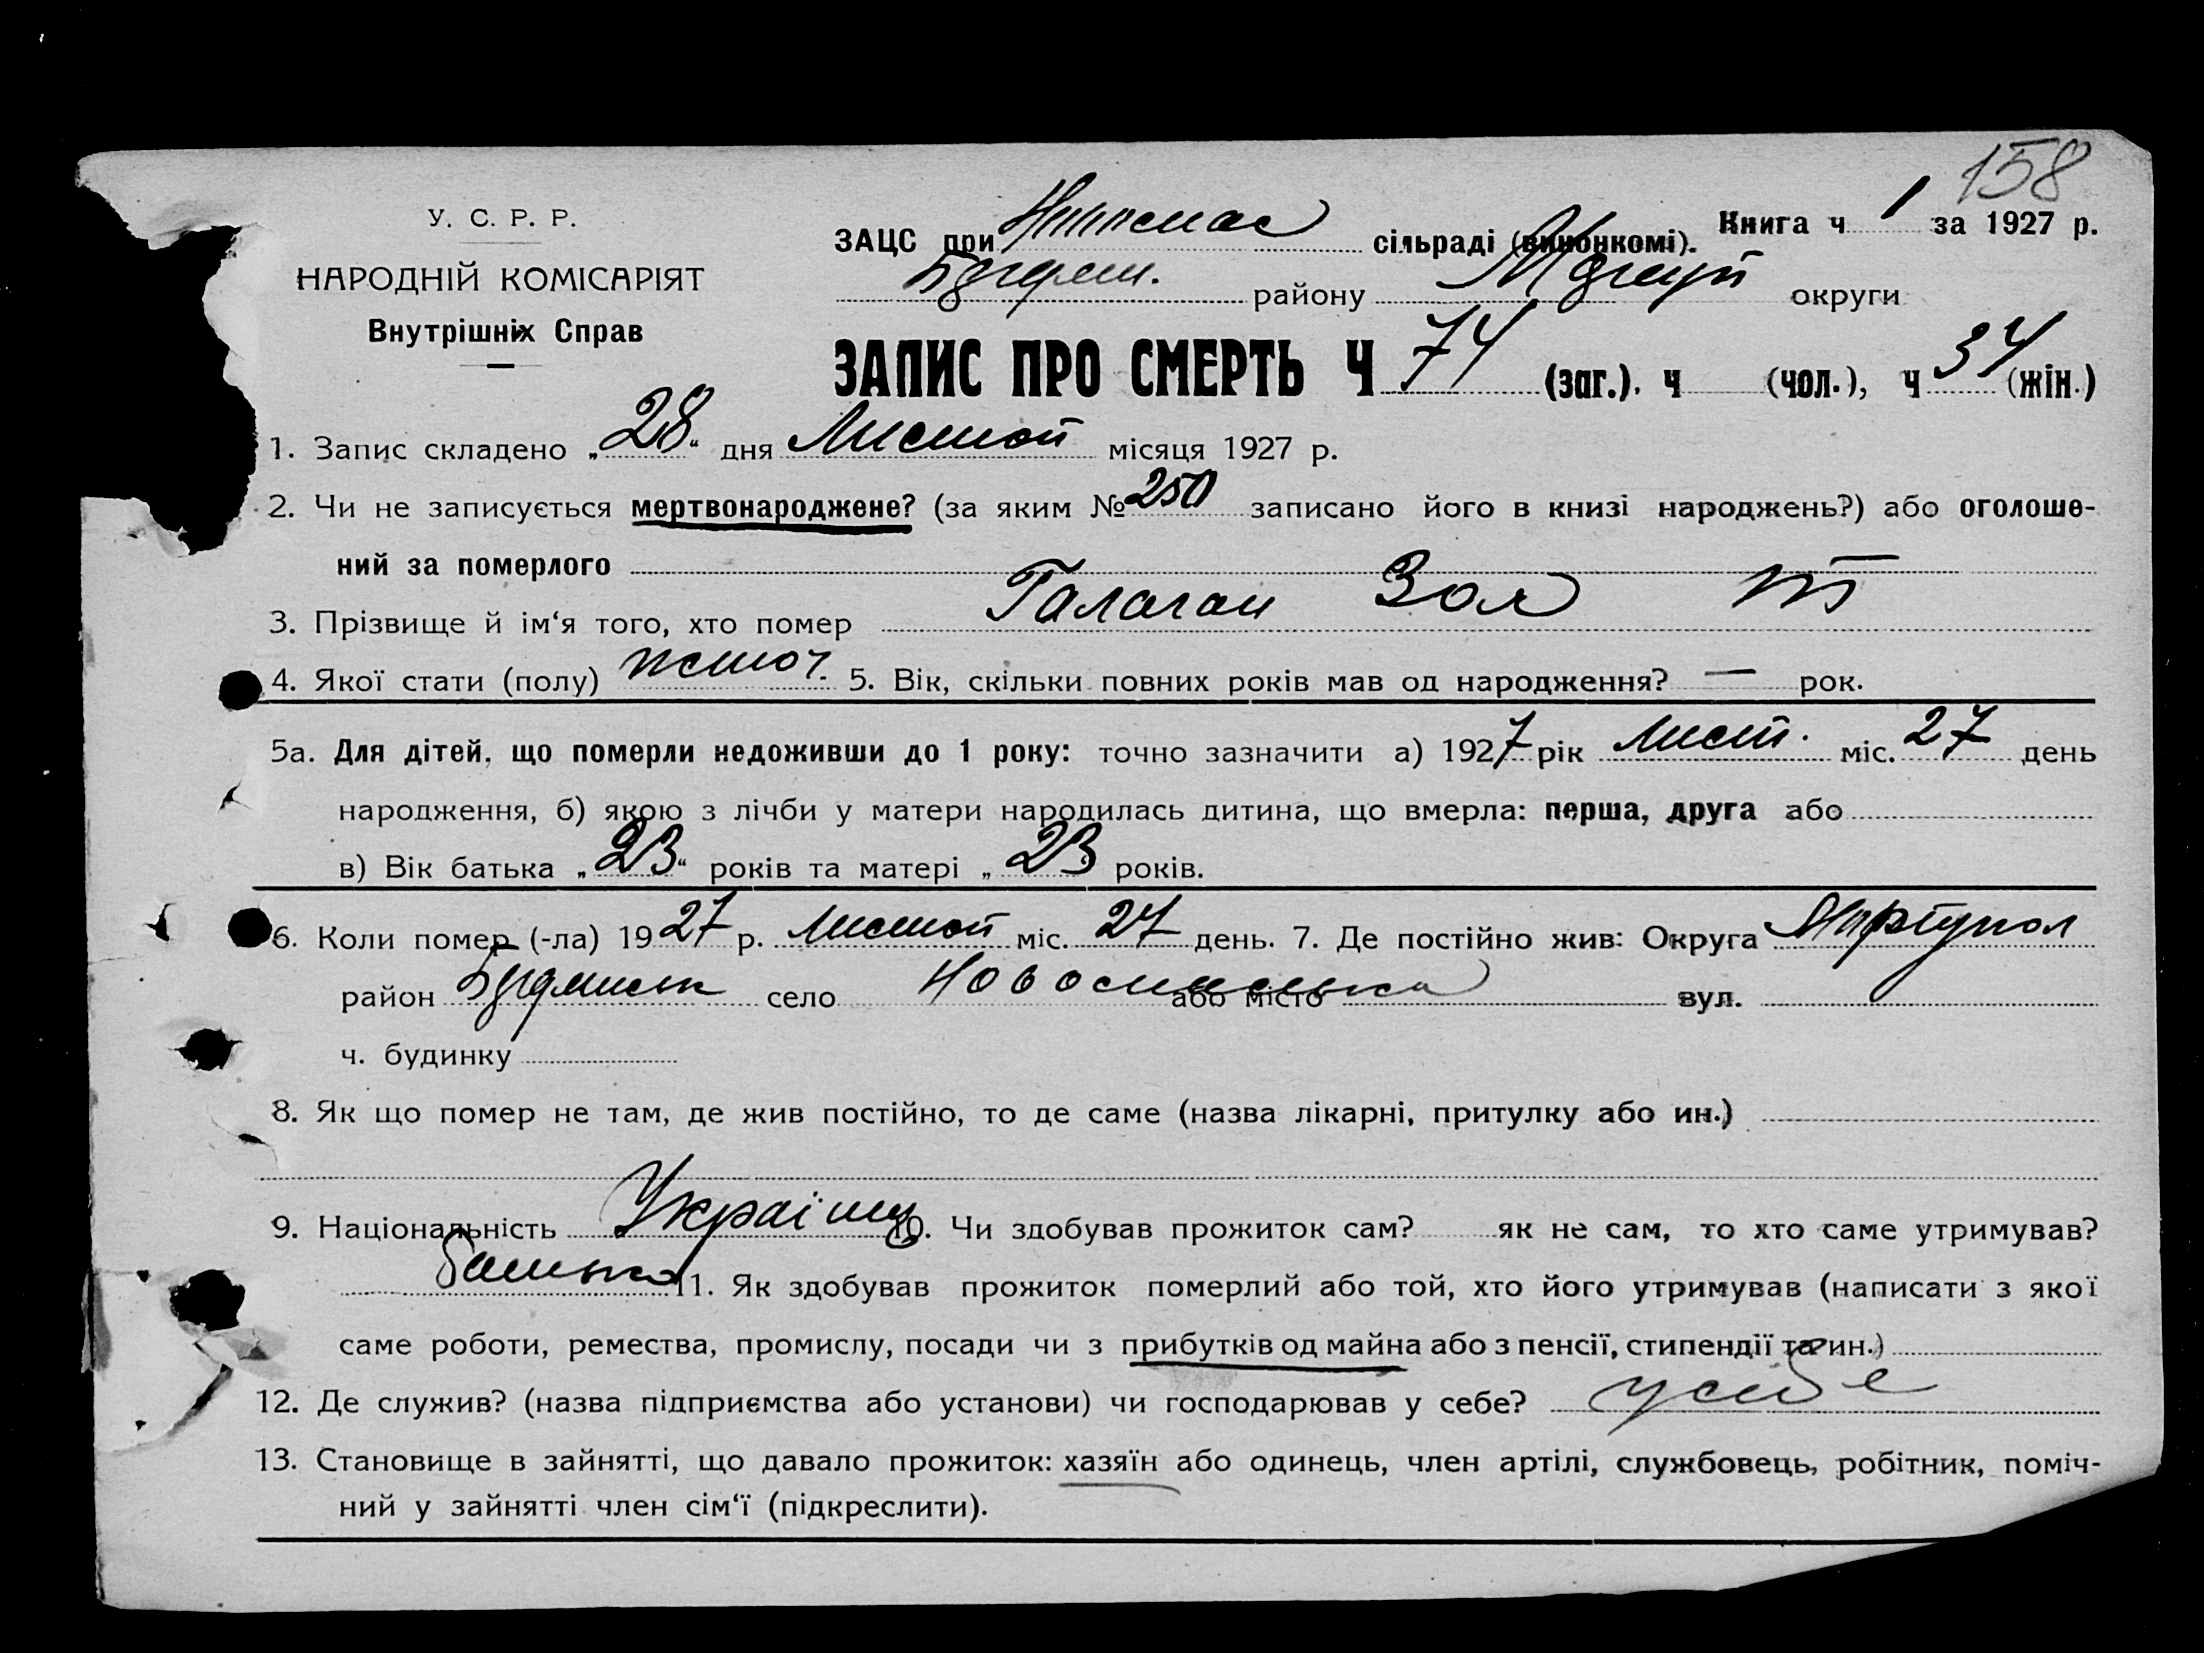 158
У. С. Р. Р.
НАРОДНІЙ КОМІСАРІЯТ
Внутрішніх Справ
Книга ч 1 за 1927 р.
ЗАЦС при сільраді (виконкомі).
району округи
ЗАПИС ПРО СМЕРТЬ Ч 74 (заг.). ч (чол.), ч 34 (жін.)
1. Запис складено „28“ дня Листоп місяця 1927 р.
2. Чи не записується мертвонароджене? (за яким № 250 записано його в книзі народжень?) або оголоше-
ний за померлого
3. Прізвище й ім‘я того, хто помер Галаган Зоя
4. Якої стати (полу) 5. Вік, скільки повних років мав од народження? — рок.
5а. Для дітей, що померли недоживши до 1 року: точно зазначити а) 1927 рік Лист. міс. 27 день
народження, б) якою з лічби у матери народилась дитина, що вмерла: перша, друга або
в) Вік батька „23“ років та матері „23 років.
6. Коли помер (-ла) 1927 р. Листоп міс. 27 день. 7. Де постійно жив: Округа Маріупол
район село або місто вул.
ч. будинку
8. Як що помер не там, де жив постійно, то де саме (назва лікарні, притулку або ин.)
9. Національність 10. Чи здобував прожиток сам? як не сам, то хто саме утримував?
батько 11. Як здобував прожиток померлий або той, хто його утримував (написати з якої
саме роботи, ремества, промислу, посади чи з прибутків од майна або з пенсії, стипендії та ин.)
12. Де служив? (назва підприємства або установи) чи господарював у себе? у себе
13. Становище в зайнятті, що давало прожиток: хазяїн або одинець, член артілі, службовець, робітник, поміч-
ний у зайнятті член сім‘ї (підкреслити).